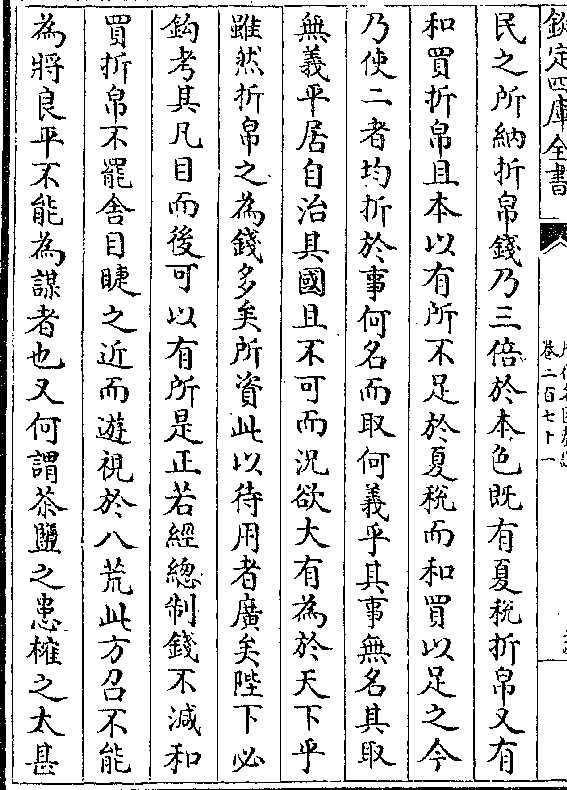 欽定四庫全書
卷二百七十一
民之所納折帛錢乃三倍於本色既有夏稅折帛又有
和買折帛且本以有所不足於夏稅而和買以足之今
乃使二者均折於事何名而取何義乎其事無名其取
無義平居自治其國且不可而況欲大有為於天下乎
雖然折帛之為錢多矣所資此以待用者廣矣陛下必
鈎考其凡目而後可以有所是正若經總制錢不減和
買折帛不罷舍目睫之近而遊視於八荒此方召不能
為將良平不能為謀者也又何謂茶鹽之患榷之太甚